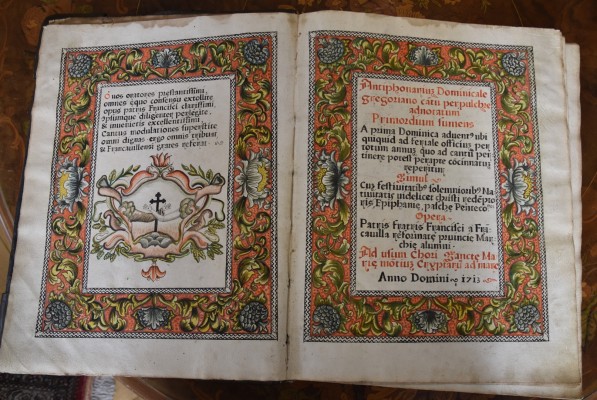 Quos oratores prestantissimi,
omnes equo consensu extollite
opus patris Francisci clarissimi,
ipsumque diligenter perlegite,
& invenietis excellentissimi,
Cantus modulationes superstite
omni dignas ergo omnes tribum
& Francavillensi graves referat
Antiphonarius Dominicale
gregoriano cātu perpulchre
adnotatum
Primordium sumens
A prima Dominica adventꝰ ubi
quiquid ad feriale officius per
totum annus quo ad cantū per
tinere potest perapte cōcinatus
reperitur
Simul
Cuz festivitatibꝰ solemnioribꝰ Na
tivitatis videlicet christi redēpto
ris Epiphanie, pasche Penteco
Opera
Patris Fratris Francisci a Frā
cavilla reformate pvincie Mar
chie alumni
Ad usum Chori Sancte Ma
rie montis Cryptarū ad mare
Anno Domini 1713